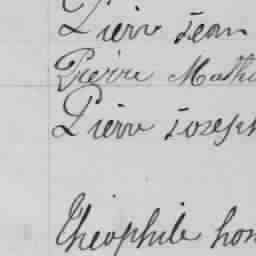 Pierre Jean
Pierre Math
Pierre Joseph
Théophile hon